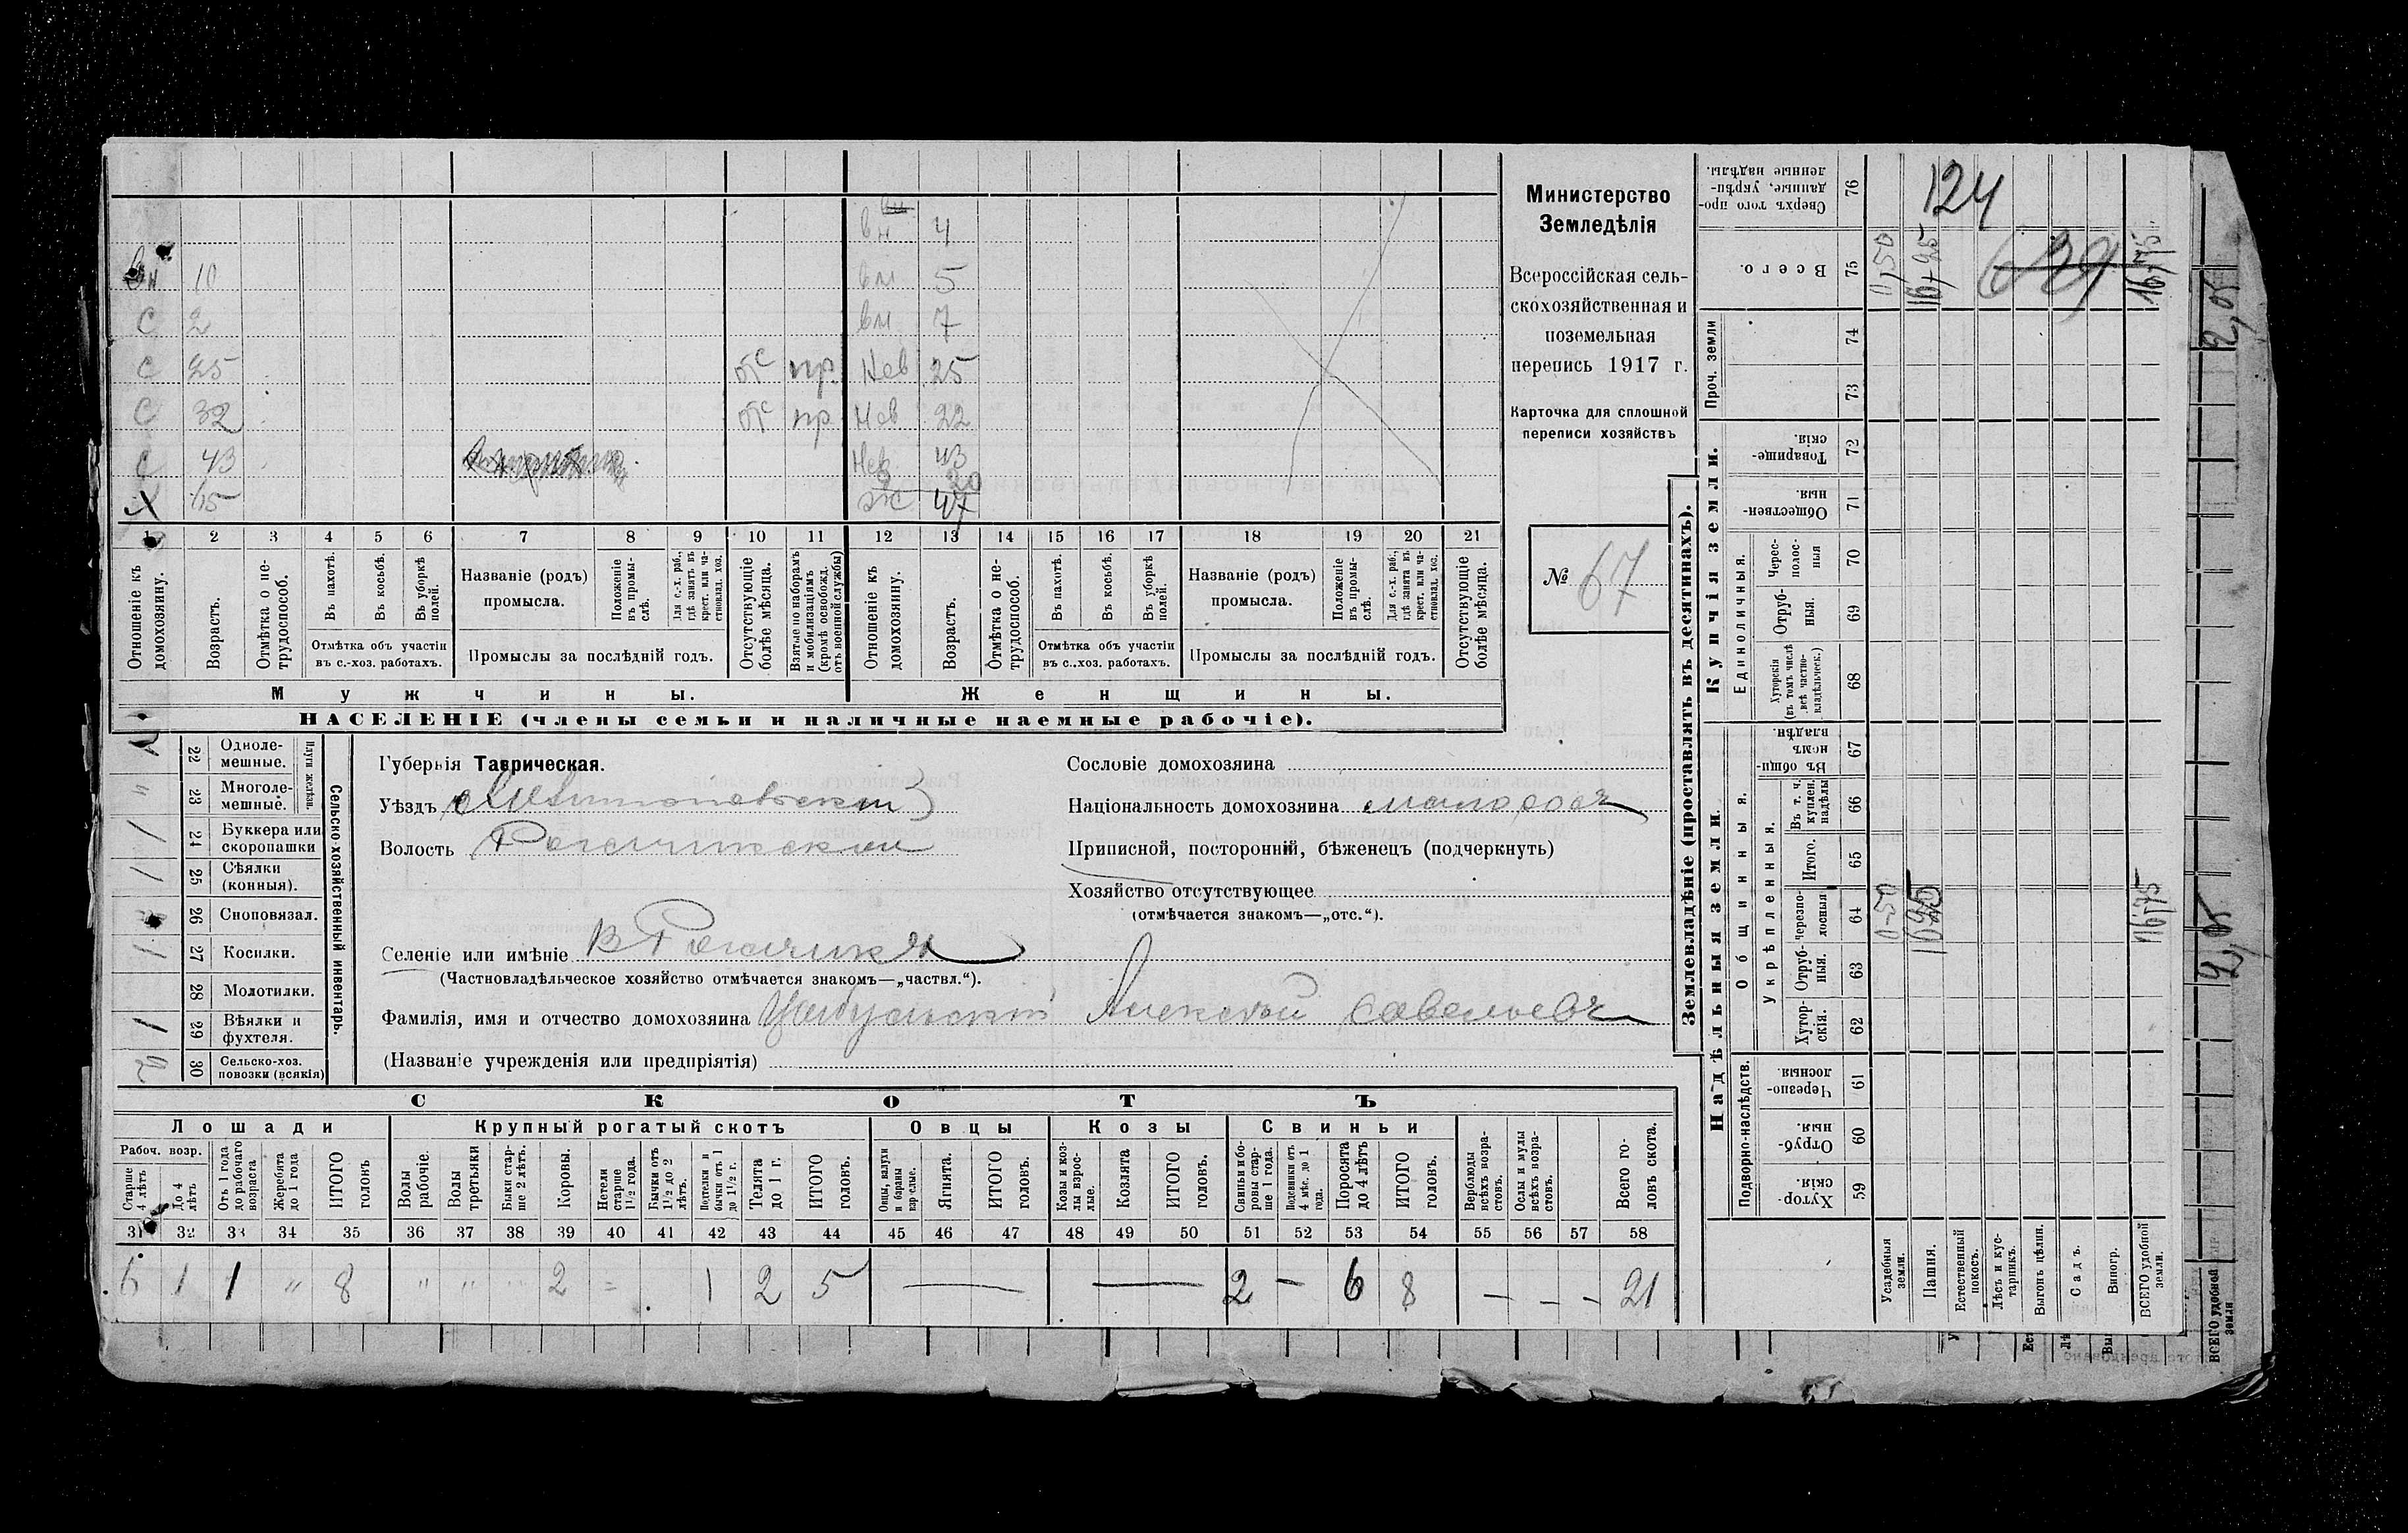 вн 4
Вн 10 вн 5
С 2 вн 7
С 25 отс пр. Нев 25
С 32 отс пр Нев 22
С 43 Нев 43
20
Х 65 ж 47
1 2 3 4 5 6 7 8 9 10 11 12 13 14 15 16 17 18 19 20 21
Отношеніе къ домохозяину.
Возрастъ.
Отмѣтка о нетрудоспособ.
Въ пахотѣ.
Въ косьбѣ.
Въ уборкѣ полей.
Отмѣтка объ участіи въ с.-хоз. работахъ.
Названіе (родъ) промысла.
Положеніе въ промыслѣ.
Для с.-х. раб., гдѣ занятъ въ крест. или частновлад. хоз.
Промыслы за послѣдній годъ.
Отсутствующіе болѣе мѣсяца.
Взятые по наборамъ и мобилизаціямъ (кромѣ освобожд. отъ военной службы)
Отношеніе къ домохозяину.
Возрастъ.
Отмѣтка о нетрудоспособ.
Въ пахотѣ.
Въ косьбѣ.
Въ уборкѣ полей.
Отмѣтка объ участіи въ с..хоз. работахъ.
Названіе (родъ) промысла.
Положеніе въ промыслѣ.
Для с.-х. раб., гдѣ занята въ крест. или частновлад. хоз.
Промыслы за послѣдній годъ.
Отсутствующіе болѣе мѣсяца.
Мужчины. Женщины.
НАСЕЛЕНІЕ (члены семьи и наличные наемные рабочіе).
Министерство
Земледѣлія
Всероссійская сель-
скохозяйственная и
поземельная
перепись 1917 г.
Карточка для сплошной
переписи хозяйствъ
№ 67
22 Одноле-мешные.
Плуги желѣзн.
" 23 Многоле-мешные.
1 24 Буккера или скоропашки
1 25 Сѣялки (конныя).
26 Сноповязал.
1 27 Косилки.
28 Молотилки.
1 29 Вѣялки и фухтеля.
2 30 Сельско-хоз. повозки (всякія)
Сельско-хозяйственный инвентарь.
Губернія Таврическая.
Уѣздъ Мелитопольскій
Волость Рогачикская
Селеніе или имѣніе В Рогачикъ
(Частновладѣльческое хозяйство отмѣчается знакомъ—„частвл.“).
Сословіе домохозяина
Національность домохозяина малоросъ
Приписной, посторонній, бѣженецъ (подчеркнуть)
Хозяйство отсутствующее
(отмѣчается знакомъ—„отс.“).
Фамилія, имя и отчество домохозяина Цыбульскій Алексѣй Савельевъ
(Названіе учрежденія или предпріятія)
СКОТЪ
Лошади Крупный рогатый скотъ Овцы Козы Свиньи
Рабоч. возр.
Старше 4 лѣтъ
До 4 лѣтъ
Отъ 1 года до рабочаго возраста
Жеребята до 1 года
ИТОГО головъ
Волы рабочіе.
Волы третьяки
Быки старше 2 лѣтъ.
Коровы.
Нетели старше 1 1/2 года.
Бычки отъ 1 1/2 до 2 лѣтъ.
Подтелки и бычки отъ 1 до 1 1/2 г.
Телята до 1 г.
ИТОГО головъ.
Овцы, валухи и бараны взрослые.
Ягнята.
ИТОГО головъ.
Козы и козлы взрослые.
Козлята
ИТОГО головъ.
Свиньи и боровы старше 1 года.
Подсвинки отъ 4 мѣс. до 1 года.
Поросята до 4 лѣтъ
ИТОГО головъ.
Верблюды всѣхъ возрастовъ.
Ослы и мулы всѣхъ возрастовъ.
Всего головъ скота.
31 32 33 34 35 36 37 38 39 40 41 42 43 44 45 46 47 48 49 50 51 52 53 54 55 56 57 58
6 1 1 " 8 " " " 2 = 1 2 5 — — 2 – 6 8 – – – 21
Землевладѣніе (проставлять въ десятинахъ).
Купчія земли.
Надѣльныя земли.
Сверхъ того проданные, укрѣпленные надѣлы. 76
Всего. 75
Проч. земли 74 73
Товарищескія. 72
Общественныя. 71
Единоличныя.
Чересполосныя 70
Отрубныя. 69
Хуторскія (въ томъ числѣ всѣ частновладѣльческ.) 68
Общинныя.
Въ общинномъ владѣн. 67
Укрѣпленныя.
Въ т. ч. куплен. надѣлы 66
Итого. 65
Черезполосныя 64
Отрубныя. 63
Хуторскія. 62
Подворно-наслѣдств.
Черезполосныя. 61
Отрубныя. 60
Хуторскія. 59
124
639
0,50 16,25 16,75
0-50 1625 16,75
Усадебныя земли.
Пашня.
Естественный покосъ.
Лѣсъ и кустарникъ.
Выгонъ цѣлин.
Садъ.
Виногр.
ВСЕГО удобной земли.
ВСЕГО удобной земли